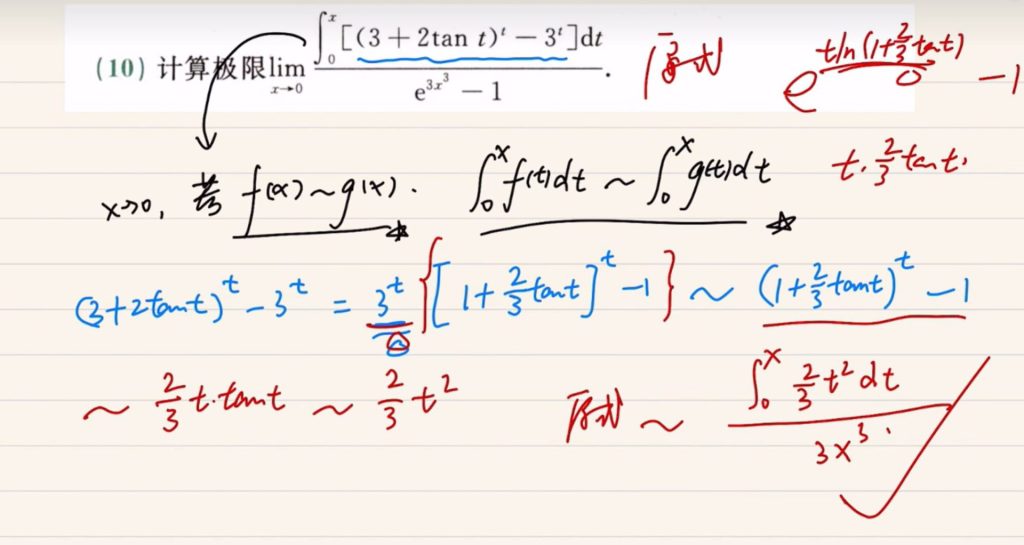 (10) 计算极限lim x→0 ∫₀ˣ[(3+2tan t)ᵗ − 3ᵗ]dt / e^{3x³} − 1 .
e^{t ln(1+2/3 tant)} − 1
0
t·2/3 tant.
x→0, 若 f(x)~g(x). ∫₀ˣ f(t)dt ~ ∫₀ˣ g(t)dt
(3+2tant)ᵗ − 3ᵗ = 3ᵗ{[1+2/3 tant]ᵗ − 1} ~ (1+2/3 tant)ᵗ − 1
~ 2/3 t·tant ~ 2/3 t² 原式 ~ ∫₀ˣ 2/3 t² dt / 3x³.